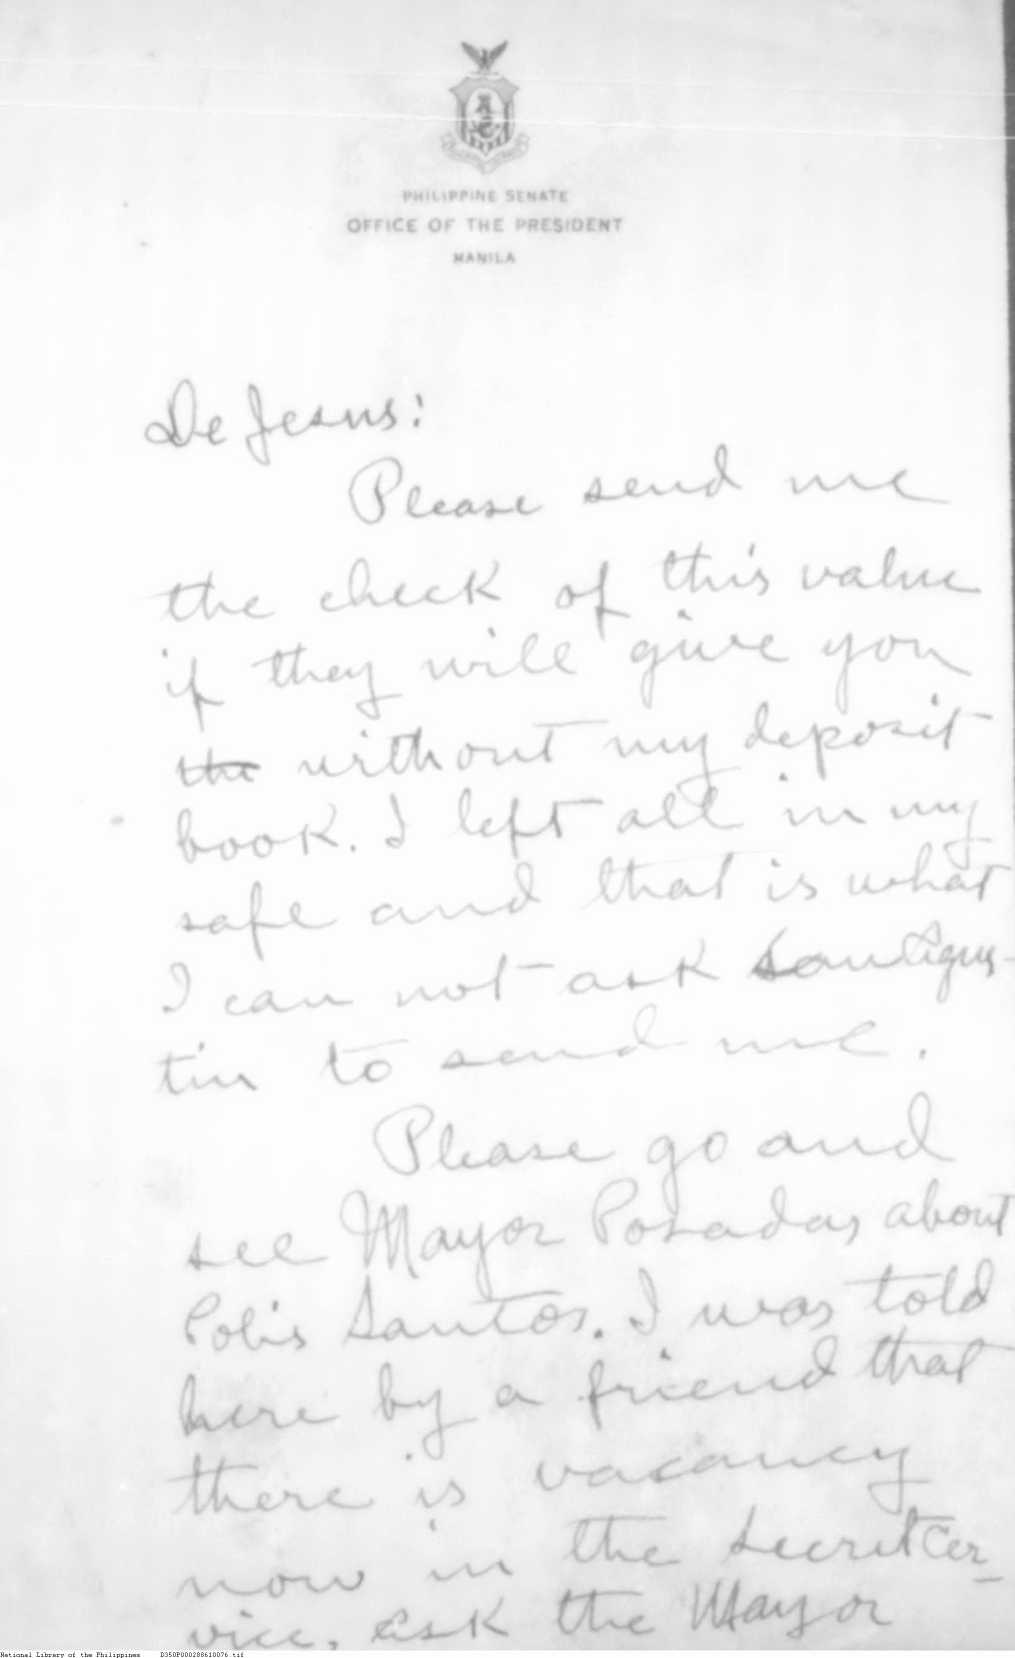 PHILIPPINE SENATE
OFFICE OF THE PRESIDENT
MANILA
De Jesus:
Please send me
the check of this value
if they will give you
the without my deposit
book. I left all in my
safe and that is what
I can not ask San Agus-
tin to send me.
Please go and
see Mayor Posadas about
Polis Santos. I was told
here by a friend that
there is vacancy
now in the Secret Ser-
vice. Ask the Mayor
National Library of the Philippines D350P000288610076.tif